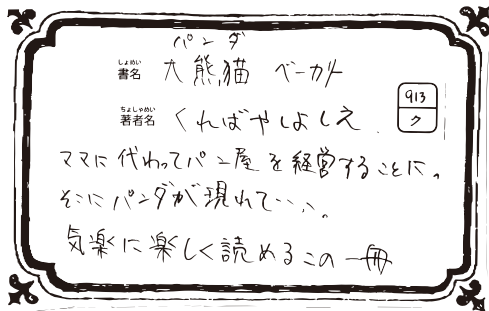 パンダ
しょめい
書名 大熊猫 ベーカリー
ちょしゃめい
著者名 くればやしよしえ
913
ク
ママに代わってパン屋を経営することに。
そこにパンダが現れて・・・。
気楽に楽しく読めるこの一冊